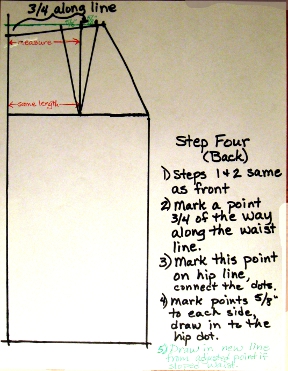 3/4 along line
5/8" 5/8"
measure
same length
Step Four
(Back)
1) Steps 1 & 2 same
as front
2) Mark a point
3/4 of the way
along the waist
line.
3) Mark this point
on hip line,
connect the dots.
4) Mark points 5/8"
to each side,
draw in to the
hip dot.
5) Draw in new line
from adjusted point if
slopes waist.